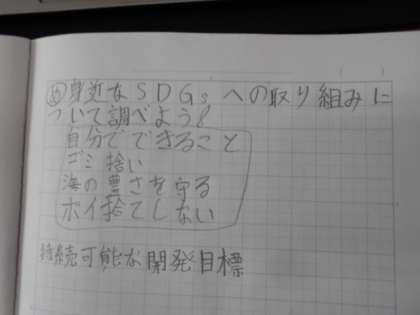 め身近なSDGsへの取り組みに
ついて調べよう!
自分でできること
ゴミ拾い
海の豊さを守る
ポイ捨てしない
持続可能な開発目標